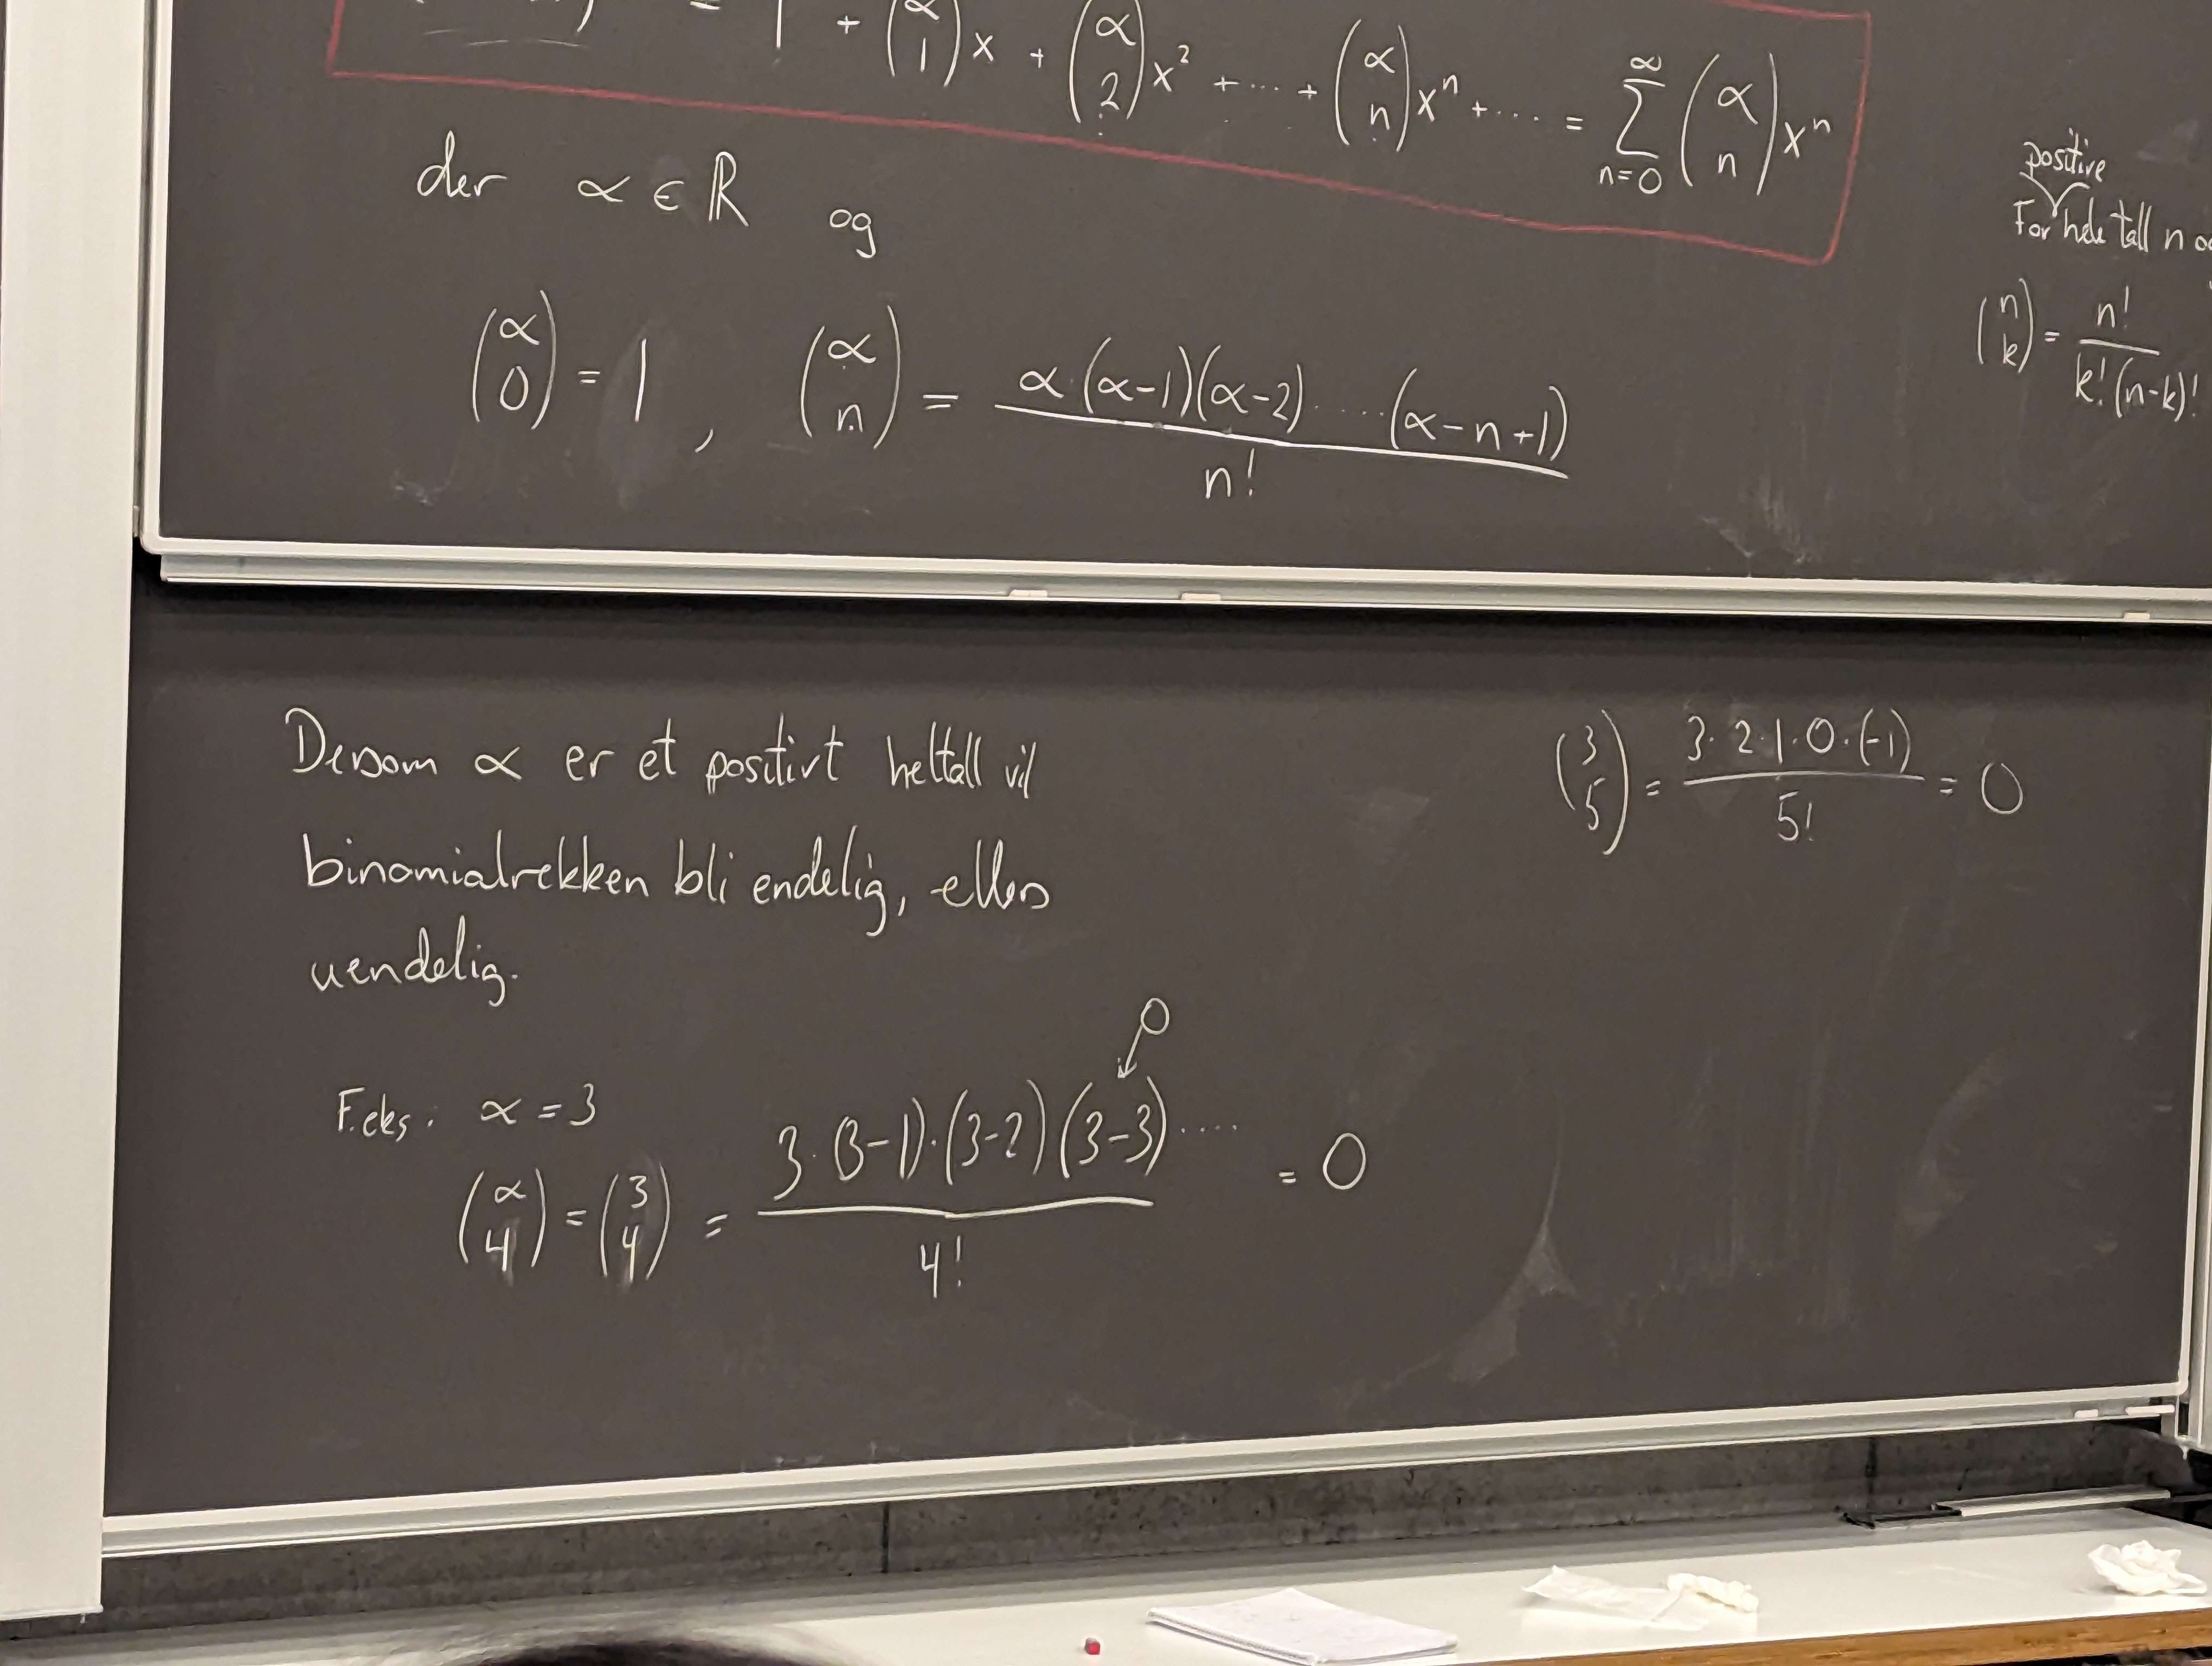 = 1 + (α 1)x + (α 2)x² + ... + (α n)xⁿ + .... = ∑_{n=0}^{∞} (α n)xⁿ
der α ∈ ℝ og
(α 0) = 1 , (α n) = α·(α-1)(α-2).....(α-n+1) / n!
positive
For hele tall n
(n k) = n! / k!(n-k)!
Dersom α er et positivt heltall vil
binomialrekken bli endelig, ellers
uendelig.
F.eks. α = 3
0
(α 4) = (3 4) = 3·(3-1)·(3-2)(3-3).... / 4! = 0
(3 5) = 3·2·1·0·(-1) / 5! = 0